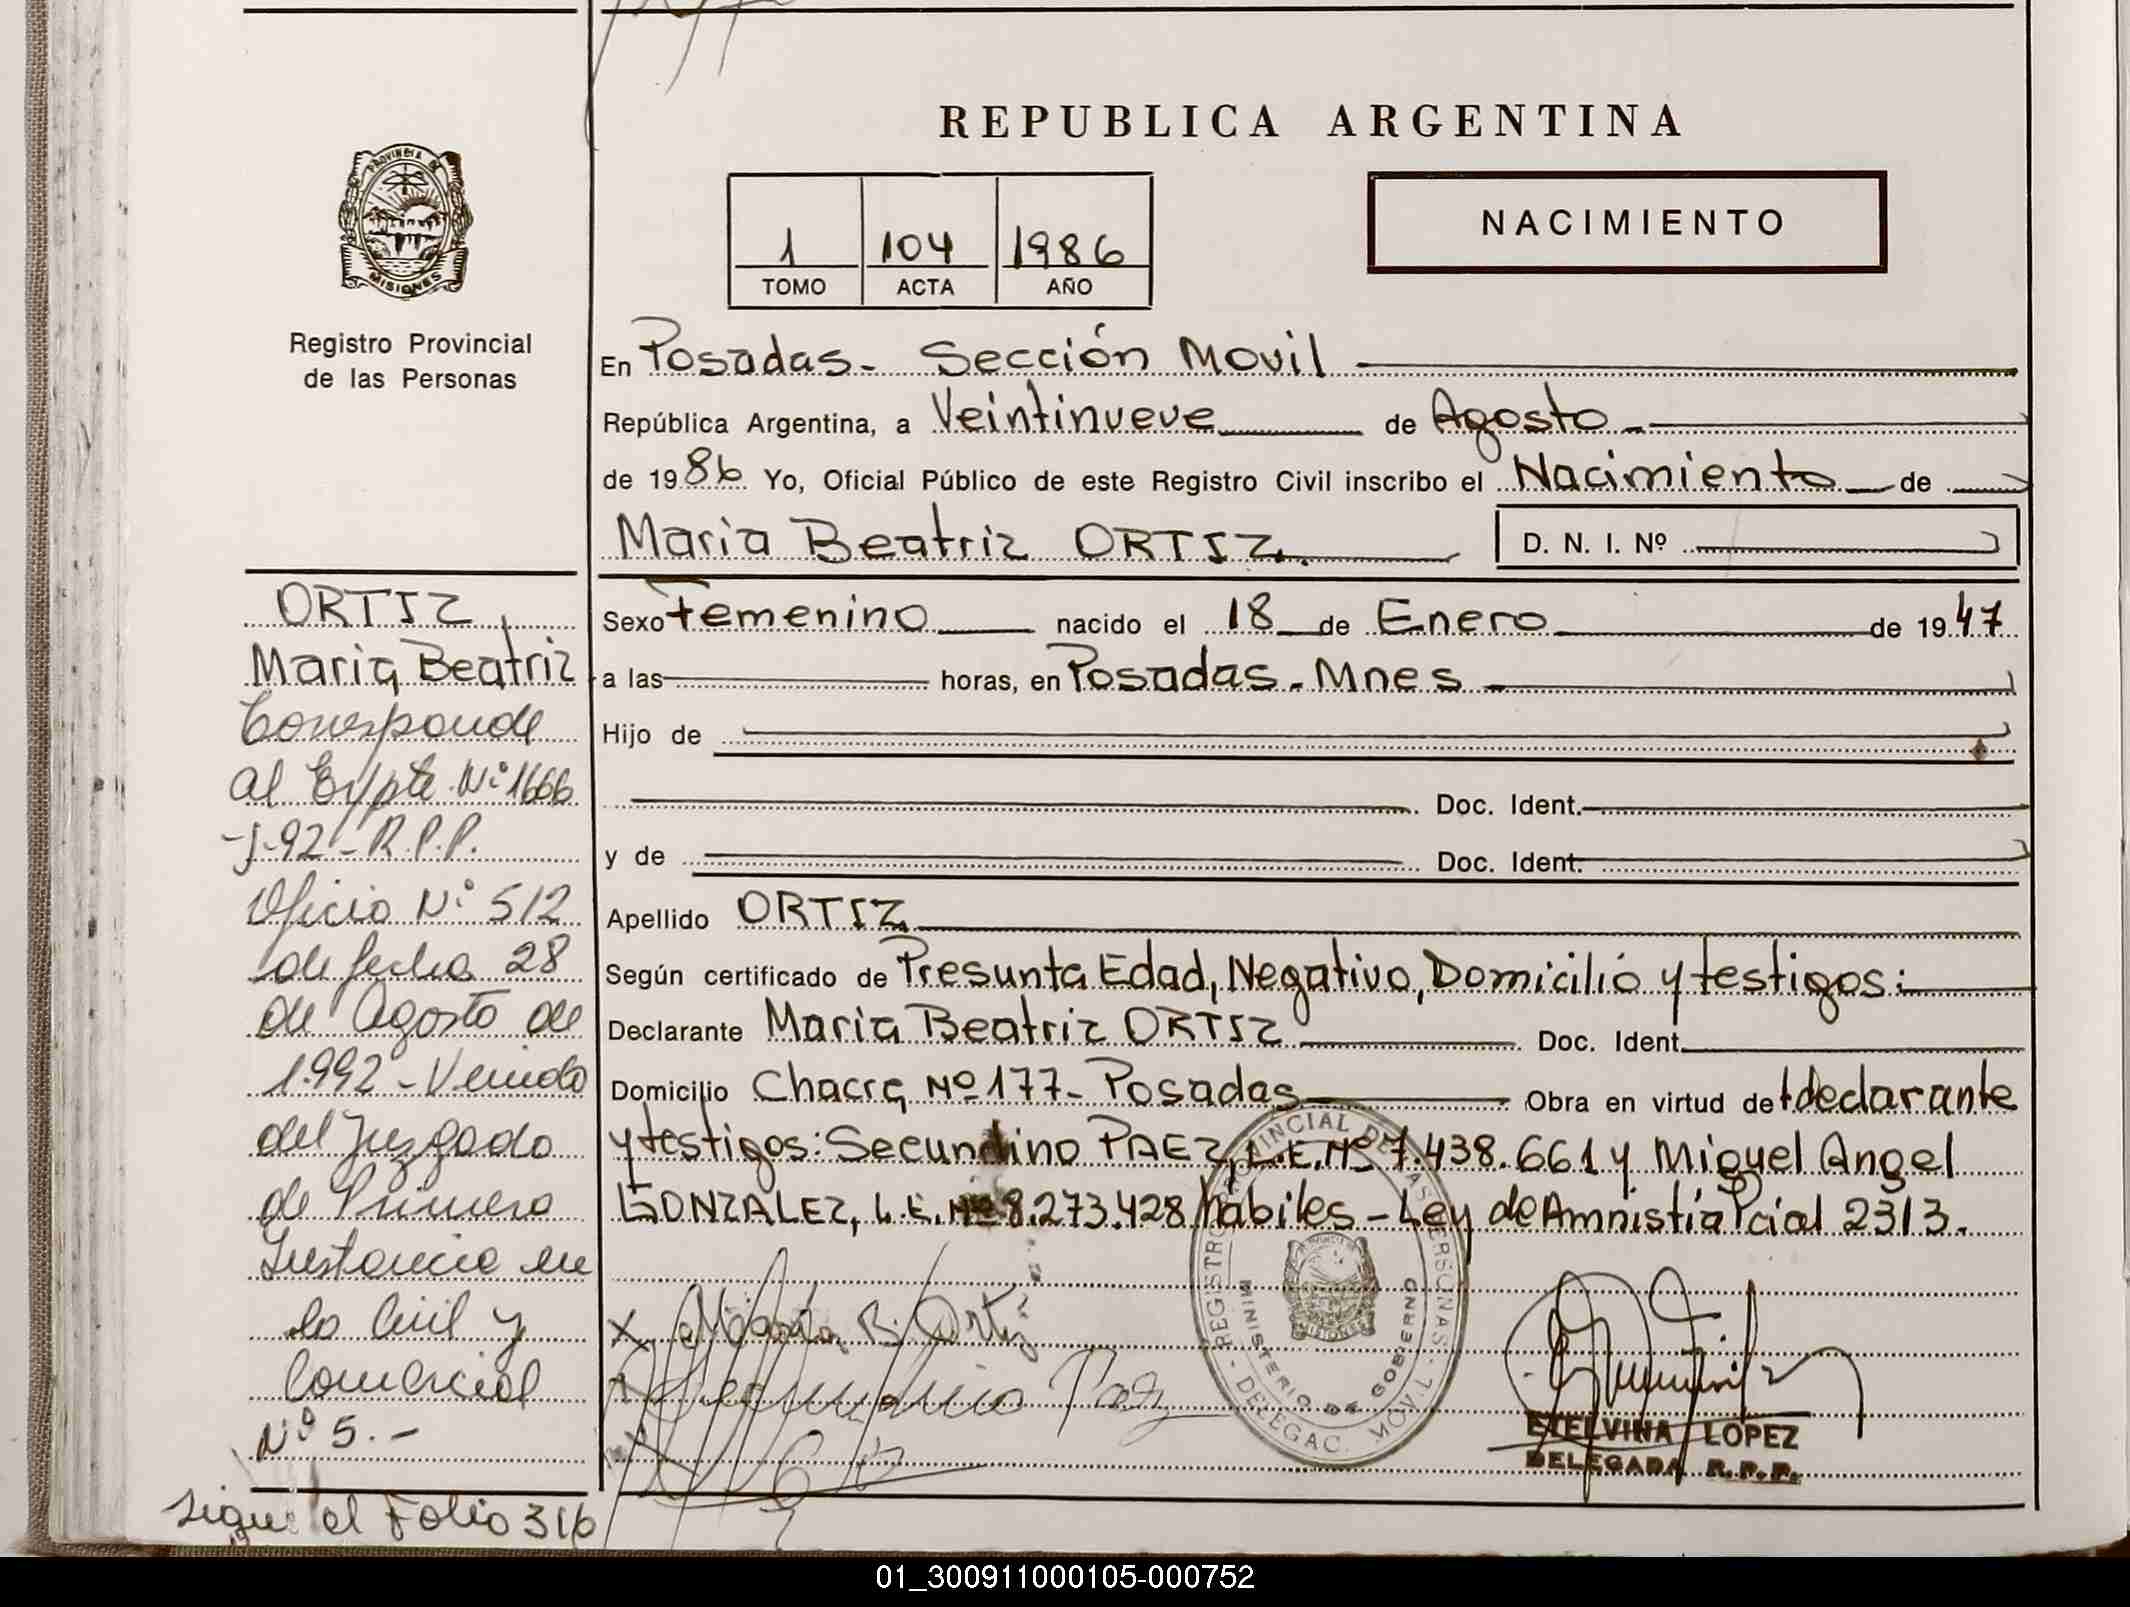 REPUBLICA ARGENTINA
PROVINCIA DE
MISIONES
Registro Provincial
de las Personas
1 104 1986
TOMO ACTA AÑO
NACIMIENTO
En Posadas - Sección Movil
República Argentina, a Veintinueve de Agosto
de 1986 Yo, Oficial Público de este Registro Civil inscribo el Nacimiento de
Maria Beatriz ORTIZ. D. N. I. Nº
Sexo Femenino nacido el 18 de Enero de 1947
a las horas, en Posadas - Mnes
Hijo de
Doc. Ident.
y de Doc. Ident.
Apellido ORTIZ
Según certificado de Presunta Edad, Negativo, Domicilio y testigos:
Declarante Maria Beatriz ORTIZ Doc. Ident.
Domicilio Chacra Nº 177 - Posadas Obra en virtud de declarante
y testigos: Secundino PAEZ, L.E. Nº 7.438.661 y Miguel Angel
GONZALEZ, L.E. Nº 8.273.428 habiles - Ley de Amnistía Pcial 2313.
ORTIZ
Maria Beatriz
Corresponde
al Expte. Nº 1666
-J-92- R.P.P.
Oficio Nº 512
de fecha 28
de Agosto de
1.992 - Venido
del Juzgado
de Primera
Instancia en
lo Civil y
Comercial
Nº 5.-
Sigue el Folio 316
X Maria B. Ortiz
Secundino Paez
REGISTRO PROVINCIAL DE LAS PERSONAS
MINISTERIO DE GOBIERNO
- DELEGAC. MOVIL -
ETELVINA LOPEZ
DELEGADA R.P.P.
01_300911000105-000752